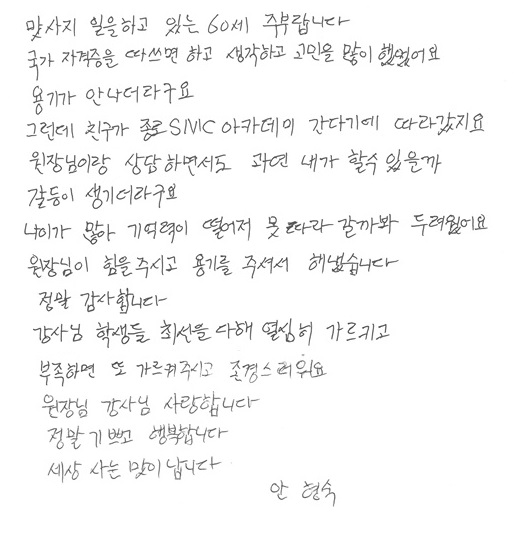 맟사지 일을하고 있는 60세 주부랍니다
국가 자격증을 따쓰면 하고 생각하고 고민을 많이 했었어요
용기가 안나더라구요
그런데 친구가 종로SMC아카데미 간다기에 따라갔지요
원장님이랑 상담하면서도 과연 내가 할수 있을까
갈등이 생기더라구요
나이가 많아 기억력이 떨어저 못 따라 갈까봐 두려웠어요
원장님이 힘을주시고 용기를 주셔서 해냈습니다
정말 감사합니다
강사님 학생들 최선을다해 열심히 가르키고
부족하면 또 가르켜주시고 존경스러워요
원장님 강사님 사랑합니다
정말기쁘고 행복합니다
세상 사는 맛이 납니다
안 형숙